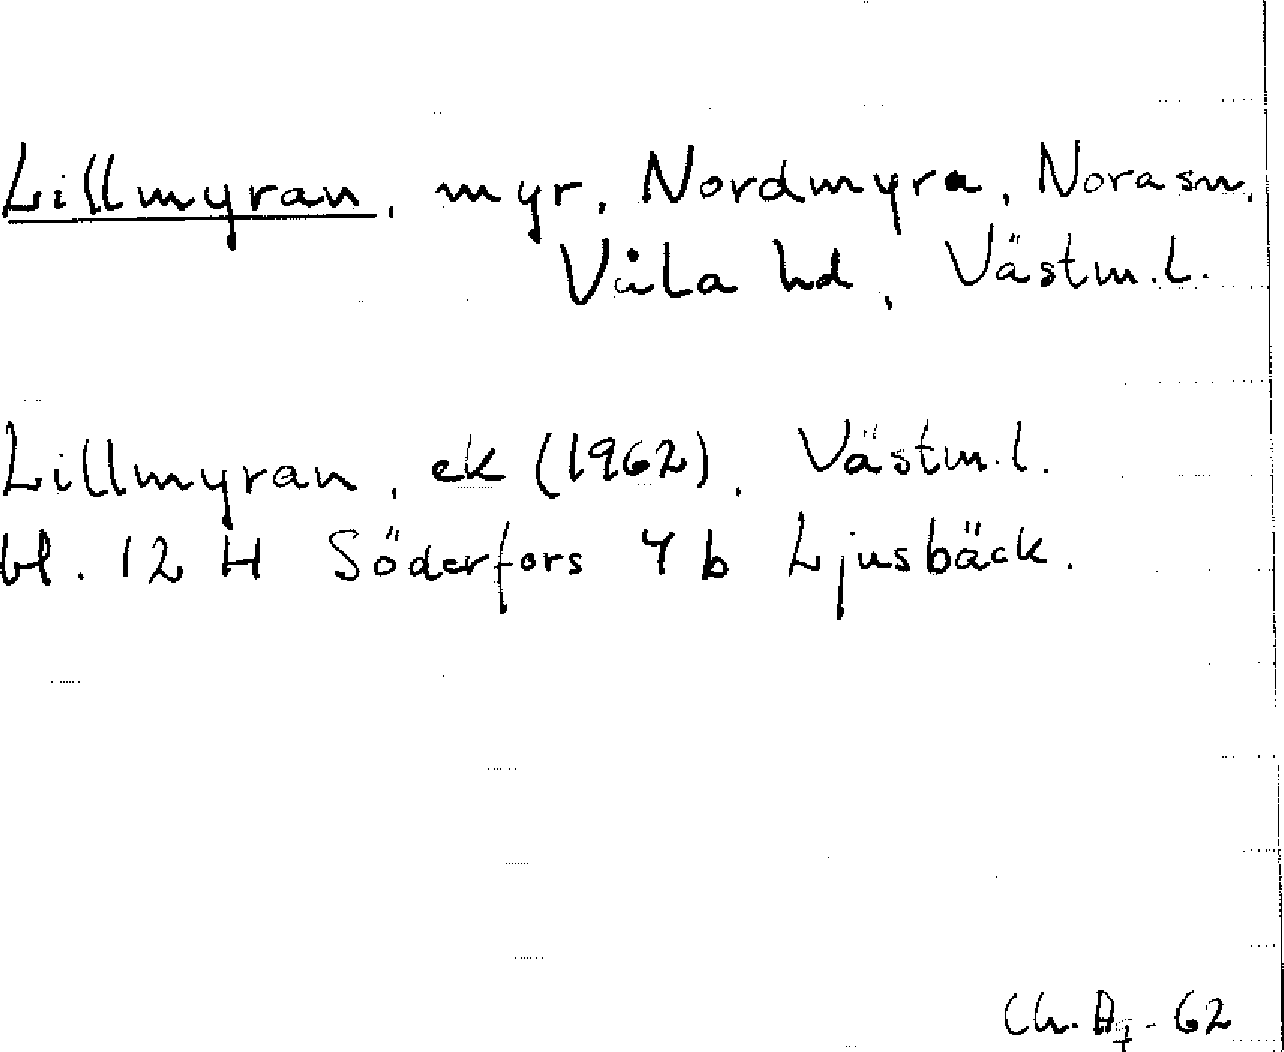 Lillmyran, myr, Nordmyra, Nora sn,
Våla hd, Västm.l.
Lillmyran, ek (1962), Västm.l.
bl. 12 H Söderfors 4 b Ljusbäck.
Ch. 62